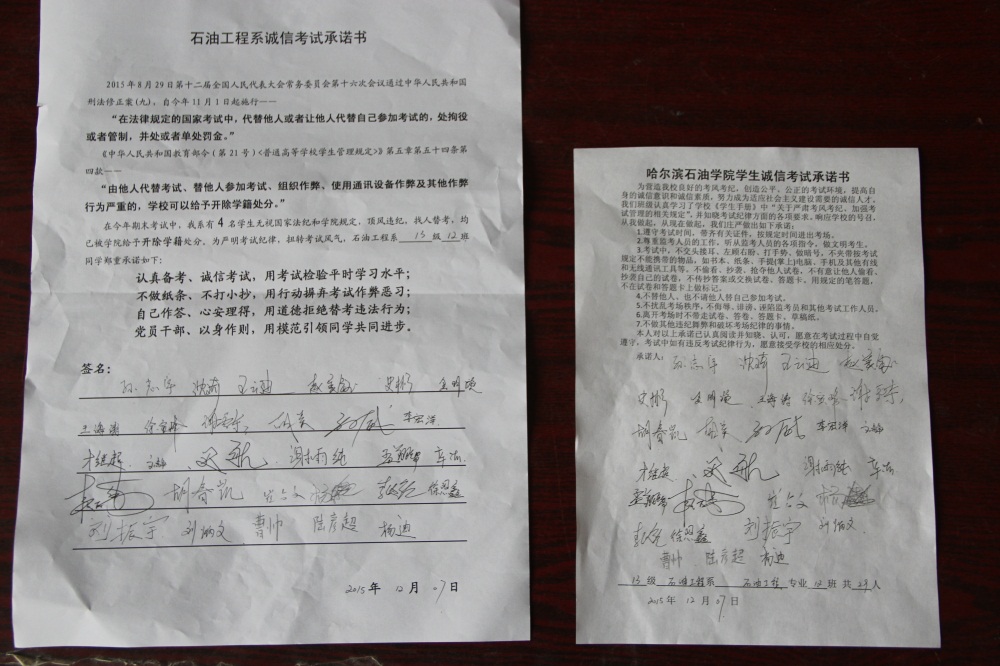 石油工程系诚信考试承诺书
2015年8月29日第十二届全国人民代表大会常务委员会第十六次会议通过中华人民共和国
刑法修正案(九)，自今年11月1日起施行——
“在法律规定的国家考试中，代替他人或者让他人代替自己参加考试的，处拘役
或者管制，并处或者单处罚金。”
《中华人民共和国教育部令（第21号）<普通高等学校学生管理规定>》第五章第五十四条第
四款——
“由他人代替考试、替他人参加考试、组织作弊、使用通讯设备作弊及其他作弊
行为严重的，学校可以给予开除学籍处分。”
在今年期末考试中，我系有4名学生无视国家法纪和学院规定，顶风违纪，找人替考，均
已被学院给予开除学籍处分。为严明考试纪律，扭转考试风气，石油工程系 13 级 12 班
同学郑重承诺如下：
认真备考、诚信考试，用考试检验平时学习水平；
不做纸条、不打小抄，用行动摒弃考试作弊恶习；
自己作答、心安理得，用道德拒绝替考违法行为；
党员干部、以身作则，用模范引领同学共同进步。
签名：
孙志华 沈琦 王云迪 史彬
王海涛 谢玉琼 李宏洋
谢雨纯 车冻
胡春凯 徐恩鑫
刘振宇 刘炳文 曹帅 陆彦超 杨迪
2015年 12月 27日
哈尔滨石油学院学生诚信考试承诺书
为营造我校良好的考风考纪，创造公平、公正的考试环境，提高自
身的诚信意识和诚信素质，努力成为适应社会主义建设需要的诚信人才，
我们班级认真学习了学校《学生手册》中“关于严肃考风考纪，加强考
试管理的相关规定”，并知晓考试纪律方面的各项要求。响应学校的号召，
从我做起，从现在做起，我们庄严做出如下承诺：
1.遵守考试时间，带齐有关证件，按规定时间进出考场。
2.尊重监考人员的工作，听从监考人员的各项指令，做文明考生。
3.考试中，不交头接耳、左顾右盼、打手势、做暗号，不夹带按考试
规定不能携带的物品，如书本、纸条、手提(掌上)电脑、手机及其他有线
和无线通讯工具等，不偷看、抄袭、抢夺他人试卷，不有意让他人偷看、
抄袭自己的试卷，不传抄答案或交换试卷、答题卡，用规定的笔答题，
不在试卷和答题卡上做标记。
4.不替他人、也不请他人替自己参加考试。
5.不扰乱考场秩序，不侮辱、诽谤、诬陷监考员和其他考试工作人员。
6.离开考场时不带走试卷、答卷、答题卡、草稿纸。
7.不做其他违纪舞弊和破坏考场纪律的事情。
本人对以上承诺已认真阅读并知晓、认可，愿意在考试过程中自觉
遵守，考试中如有违反考试纪律行为，愿意接受学校的相应处分。
承诺人：
孙志华 沈琦 王云迪
史彬 王海涛
胡春凯 李宏洋
谢雨纯 车冻
刘振宇 刘炳文
徐恩鑫
曹帅 陆彦超 杨迪
13 级 石油工程系 石油工程 专业 12 班 共 29 人
2015年 12月 27日